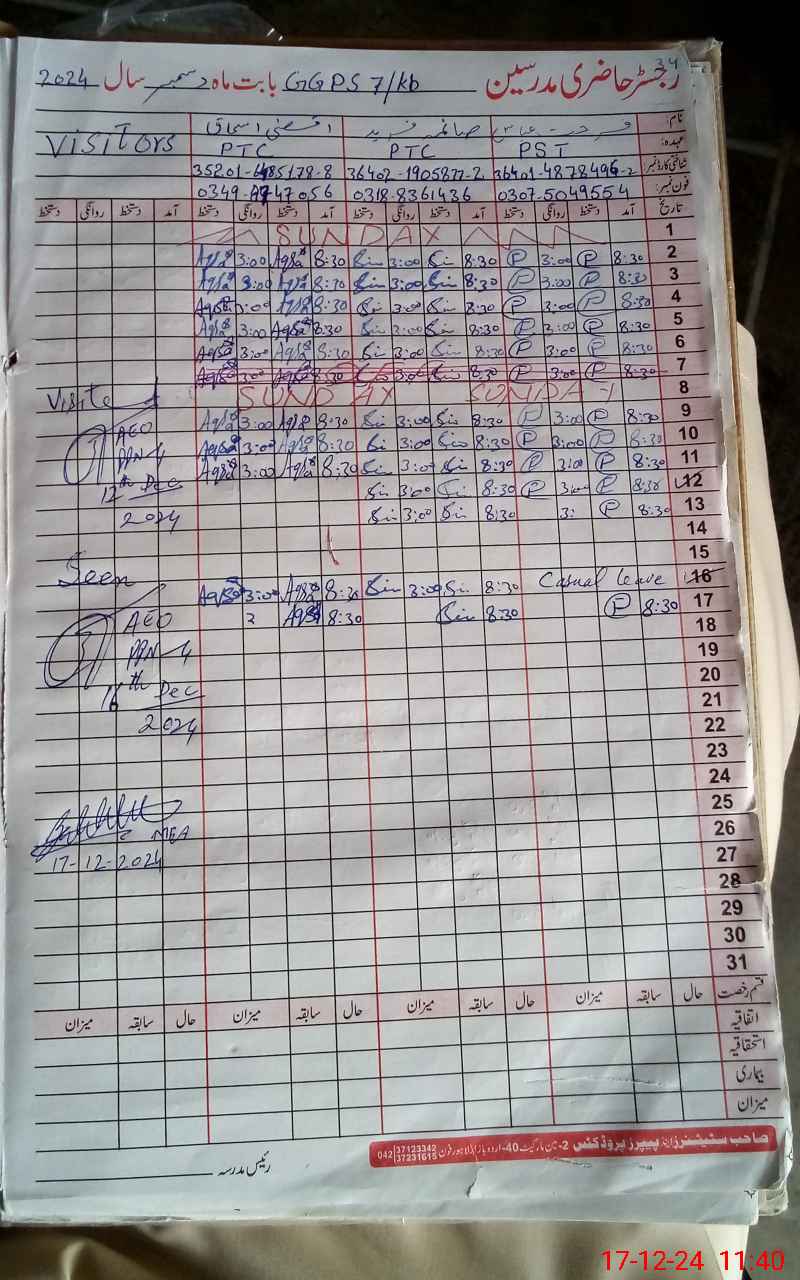 34
رجسٹر حاضری مدرسین GGPS 7/kb بابت ماہ دسمبر سال 2024
نام: فرحت عباس صائمہ فرید اقصیٰ اسحاق
عہدہ: PST PTC PTC VISITORS
شناختی کارڈ نمبر: 36402-1905877-2
فون نمبر: 0307-5049554 0318-8361436
تاریخ آمد دستخط روانگی دستخط آمد دستخط روانگی دستخط آمد دستخط روانگی دستخط آمد دستخط روانگی دستخط
1 SUNDAY
2 8:30 P 3:00 P 8:30 3:00 8:30 Aqsa 3:00 Aqsa
3 8:30 P 3:00 P 8:30 3:00 8:30 Aqsa 3:00 Aqsa
4 8:30 P 3:00 P 8:30 3:00 8:30 Aqsa 3:00 Aqsa
5 8:30 P 3:00 P 8:30 3:00 8:30 Aqsa 3:00 Aqsa
6 8:30 P 3:00 P 8:30 3:00 8:30 Aqsa 3:00 Aqsa
7 8:30 P 3:00 P 8:30 3:00 8:30 Aqsa 3:00 Aqsa
8 SUNDAY SUNDAY Visited
9 8:30 P 3:00 P 8:30 3:00 8:30 Aqsa 3:00 Aqsa
10 8:30 P 3:00 P 8:30 3:00 8:30 Aqsa 3:00 Aqsa AEO
11 8:30 P 3:00 P 8:30 3:00 8:30 Aqsa 3:00 Aqsa PPN-4
12 8:30 P 3:00 P 8:30 3:00 12th Dec
13 8:30 P 3: P 8:30 3:00 2024
14
15
16 Casual leave 8:30 3:00 8:30 Aqsa 3:00 Aqsa Seen
17 8:30 P 8:30 8:30 Aqsa
18 AEO
19 PPN-4
20
21 16th Dec
22 2024
23
24
25
26 MEA
27 17-12-2024
28
29
30
31
قسم رخصت حال سابقہ میزان حال سابقہ میزان حال سابقہ میزان حال سابقہ میزان
اتفاقیہ
استحقاقیہ
بیماری
میزان
صاحب سٹیشنرز اینڈ پیپرز پروڈکٹس 2-مین مارکیٹ 40-اردو بازار لاہور فون 37123342 37231615 042
رئیس مدرسہ
17-12-24 11:40